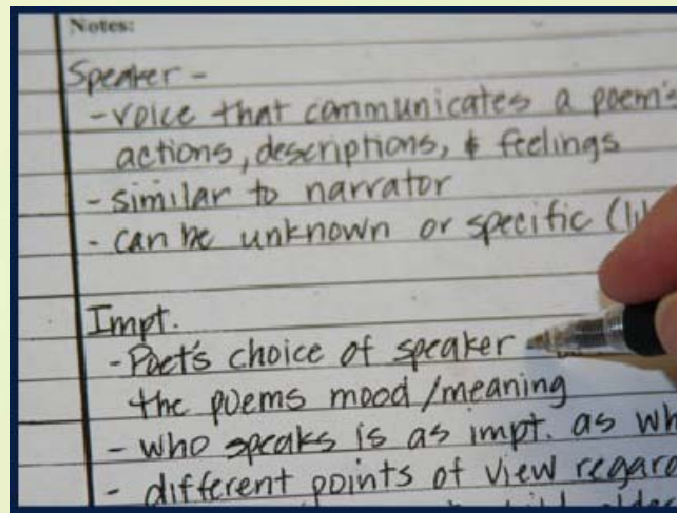 Notes:
Speaker -
- voice that communicates a poem's
actions, descriptions, & feelings
- similar to narrator
- can be unknown or specific
Impt.
- Poet's choice of speaker
the poems mood/meaning
- who speaks is as impt. as
- different points of view